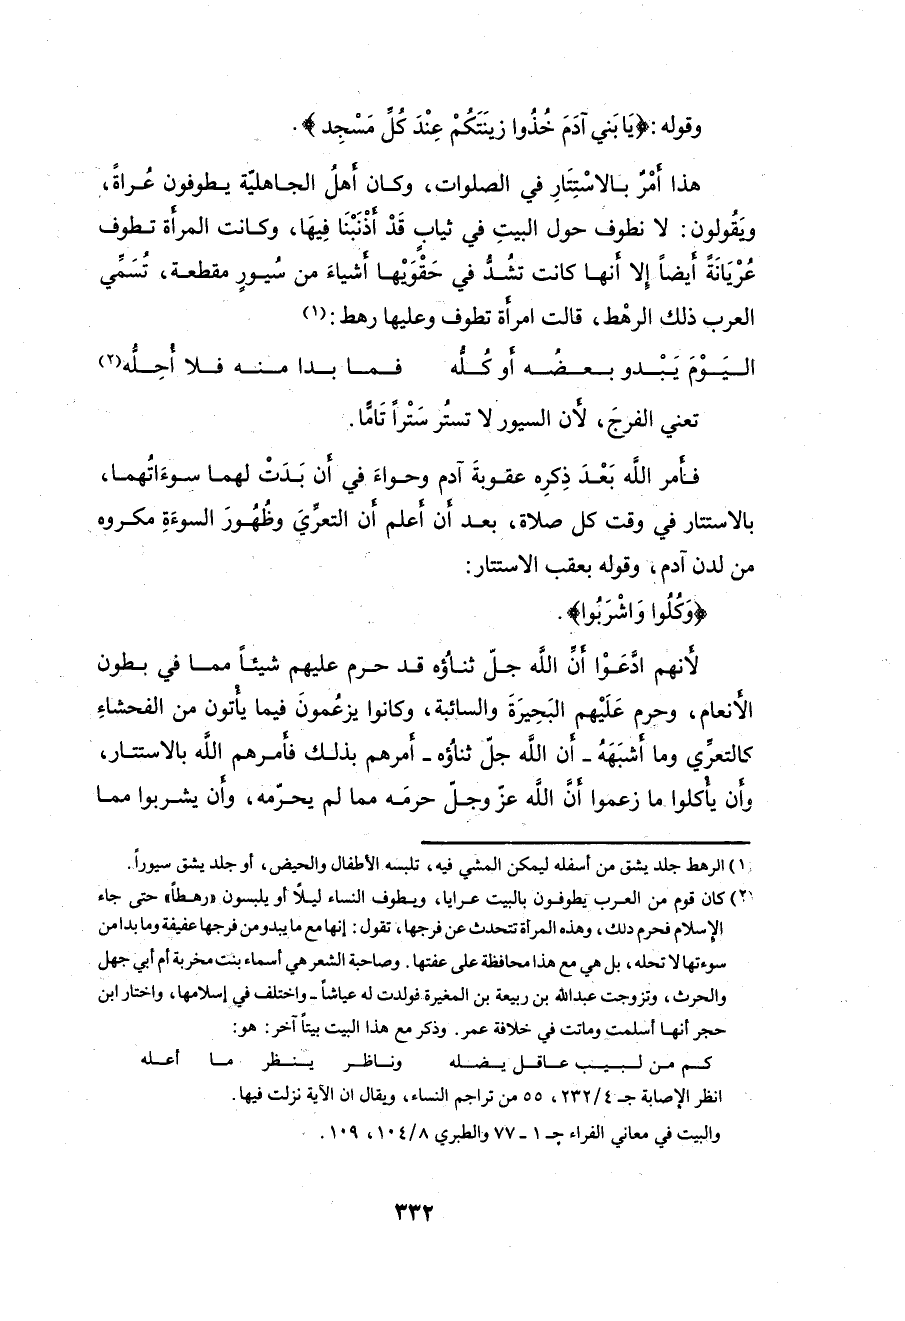 وقوله :﴿يَا بَني آدَمَ خُذُوا زينَتَكُمْ عِنْدَ كُلِّ مَسْجِد﴾.
هذا أَمْرٌ بـالاسْتِتَارِ في الصلوات، وكـان أَهلُ الجـاهليّة يـطوفون عُـراةً،
ويَقُولون: لا نطوف حول البيتِ في ثيابٍ قَدْ أَذْنَبْنَا فِيهَا، وكـانت المرأَة تـطوف
عُرْيَانَةً أَيضاً إلا أَنهـا كانت تشُـدُّ في حَقْوَيْهـا أَشياءَ من سُيـورٍ مقطعـة، تُسَمِّي
العرب ذلك الرهْط، قالت امرأَة تطوف وعليها رهط:(١)
الـيَـوْمَ يَـبْـدو بـعـضُـه أَو كُـلُّه فـمـا بـدا مـنـه فـلا أُحِـلُّه(٢)
تعني الفرجَ، لأَن السيور لا تستُر سَتْراً تَامًّا.
فـأمر اللَّه بَعْـدَ ذِكرِه عقـوبةَ آدم وحـواءَ في أَن بَـدَتْ لهمـا سـوءَاتُهمـا،
بالاستتار في وقت كل صلاة، بعـد أَن أَعلم أَن التعرِّيَ وظُهُـورَ السوءَةِ مكـروه
من لدن آدم، وقوله بعقب الاستتار:
﴿وَكُلُوا وَاشْرَبُوا﴾.
لأَنهم ادَّعَـوْا أَنَّ اللَّه جـلّ ثنـاؤه قـد حـرم عليهم شيئـاً ممـا في بـطون
الأَنعام، وحرم عَلَيْهم البَحِيرَةَ والسائبة، وكانوا يزعُمونَ فيما يأْتون من الفحشاءِ
كالتعرِّي وما أَشبَهَهُ ـ أَن اللَّه جلّ ثناؤه ـ أَمرهم بذلـك فأَمـرهم اللَّه بالاستتـار،
وأَن يأْكلوا ما زعموا أَنَّ اللَّه عزّ وجـلّ حرمَـه مما لم يحـرّمه، وأَن يشـربوا ممـا
(١) الرهط جلد يشق من أسفله ليمكن المشي فيه، تلبسه الأطفال والحيض، أو جلد يشق سيوراً.
(٢) كان قوم من العـرب يطوفـون بالبيت عـرايا، ويـطوف النساء ليـلاً أو يلبسون «رهـطاً» حتى جاء
الإسلام فحرم ذلك، وهذه المرأة تتحدث عن فرجها، تقول: إنها مع ما يبدو من فرجها عفيفة وما بدا من
سوءتها لا تحله، بل هي مع هذا محافظة على عفتها. وصاحبة الشعر هي أسماء بنت مخربة أم أبي جهل
والحرث، وتزوجت عبدالله بن ربيعة بن المغيرة فولدت له عياشاً ـ واختلف في إسلامها، واختار ابن
حجر أنهـا أسلمت وماتت في خلافة عمر. وذكر مع هذا البيت بيتاً آخر: هو:
كـم مـن لـبـيـب عـاقـل يـضـله ونـاظـر يـنـظر مـا أعـله
انظر الإصابة جـ ٢٣٢/٤، ٥٥ من تراجم النساء، ويقال ان الآية نزلت فيها.
والبيت في معاني الفراء جـ ١ ـ ٧٧ والطبري ١٠٤/٨، ١٠٩.
٣٣٢